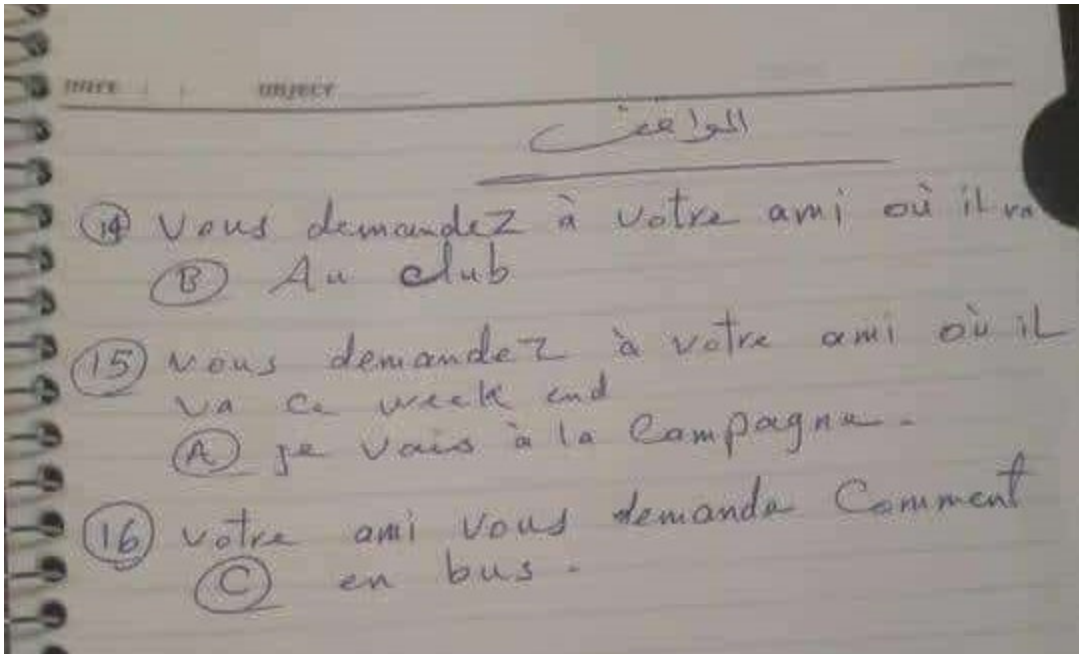 DATE / / SUBJECT
المواقف
14 Vous demandez à votre ami où il va
B Au club
15 vous demandez à votre ami où il
va ce week end
A je vais à la Campagne.
16 votre ami vous demande Comment
C en bus.